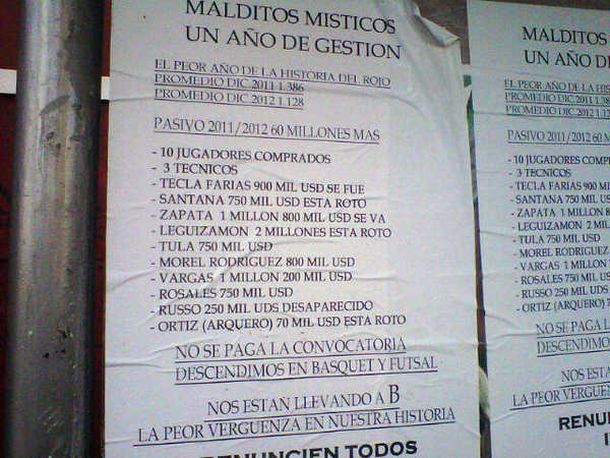 MALDITOS MISTICOS
UN AÑO DE GESTION
EL PEOR AÑO DE LA HISTORIA DEL ROJO
PROMEDIO DIC 2011 1.386
PROMEDIO DIC 2012 1.128
PASIVO 2011/2012 60 MILLONES MAS
- 10 JUGADORES COMPRADOS
- 3 TECNICOS
- TECLA FARIAS 900 MIL USD SE FUE
- SANTANA 750 MIL USD ESTA ROTO
- ZAPATA 1 MILLON 800 MIL USD SE VA
- LEGUIZAMON 2 MILLONES ESTA ROTO
- TULA 750 MIL USD
- MOREL RODRIGUEZ 800 MIL USD
- VARGAS 1 MILLON 200 MIL USD
- ROSALES 750 MIL USD
- RUSSO 250 MIL UDS DESAPARECIDO
- ORTIZ (ARQUERO) 70 MIL USD ESTA ROTO
NO SE PAGA LA CONVOCATORIA
DESCENDIMOS EN BASQUET Y FUTSAL
NOS ESTAN LLEVANDO A B
LA PEOR VERGUENZA EN NUESTRA HISTORIA
RENUNCIEN TODOS
MALDITOS
UN AÑO D
EL PEOR AÑO DE LA HIS
PROMEDIO DIC 2011 1.
PROMEDIO DIC 2012 1.
PASIVO 2011/2012 60 M
- 10 JUGADORES COMP
- 3 TECNICOS
- TECLA FARIAS 900 M
- SANTANA 750 MIL US
- ZAPATA 1 MILLON 8
- LEGUIZAMON 2 MIL
- TULA 750 MIL USD
- MOREL RODRIGUEZ
- VARGAS 1 MILLON
- ROSALES 750 MIL US
- RUSSO 250 MIL UDS
- ORTIZ (ARQUERO)
NO SE PAGA
DESCENDIMO
NOS ESTA
LA PEOR VERGUEN
RENU